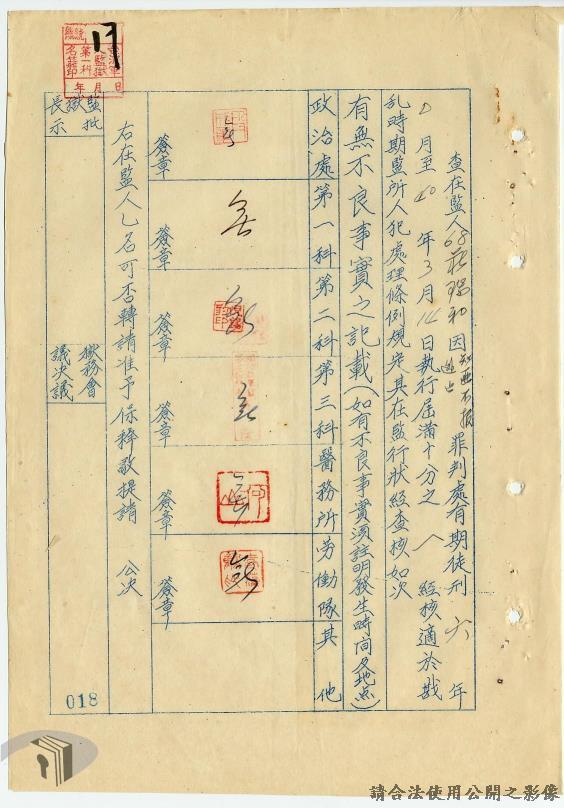 查在監人68莊瑞和因知匪不報逃亡罪判處有期徒刑六年
月至40年3月14日執行屆滿十分之八經核適於戡
乱時期監所人犯處理條例規定其在監行狀經查核如次
有無不良事實之記載(如有不良事實須註明發生時間及地点)
政治處第一科第二科第三科醫務所勞働隊其他
無
簽章
無
簽章
無
簽章
無
簽章
無
簽章
無
簽章
右在監人乙名可否轉請准予保釋敬提請 公决
獄務會議决議
監獄長批示
第一科
年月日
018
請合法使用公開之影像